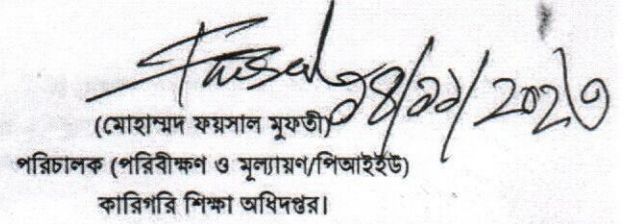 Faisal ১৪/১১/২০২৩
(মোহাম্মদ ফয়সাল মুফতী)
পরিচালক (পরিবীক্ষণ ও মূল্যায়ণ/পিআইইউ)
কারিগরি শিক্ষা অধিদপ্তর।